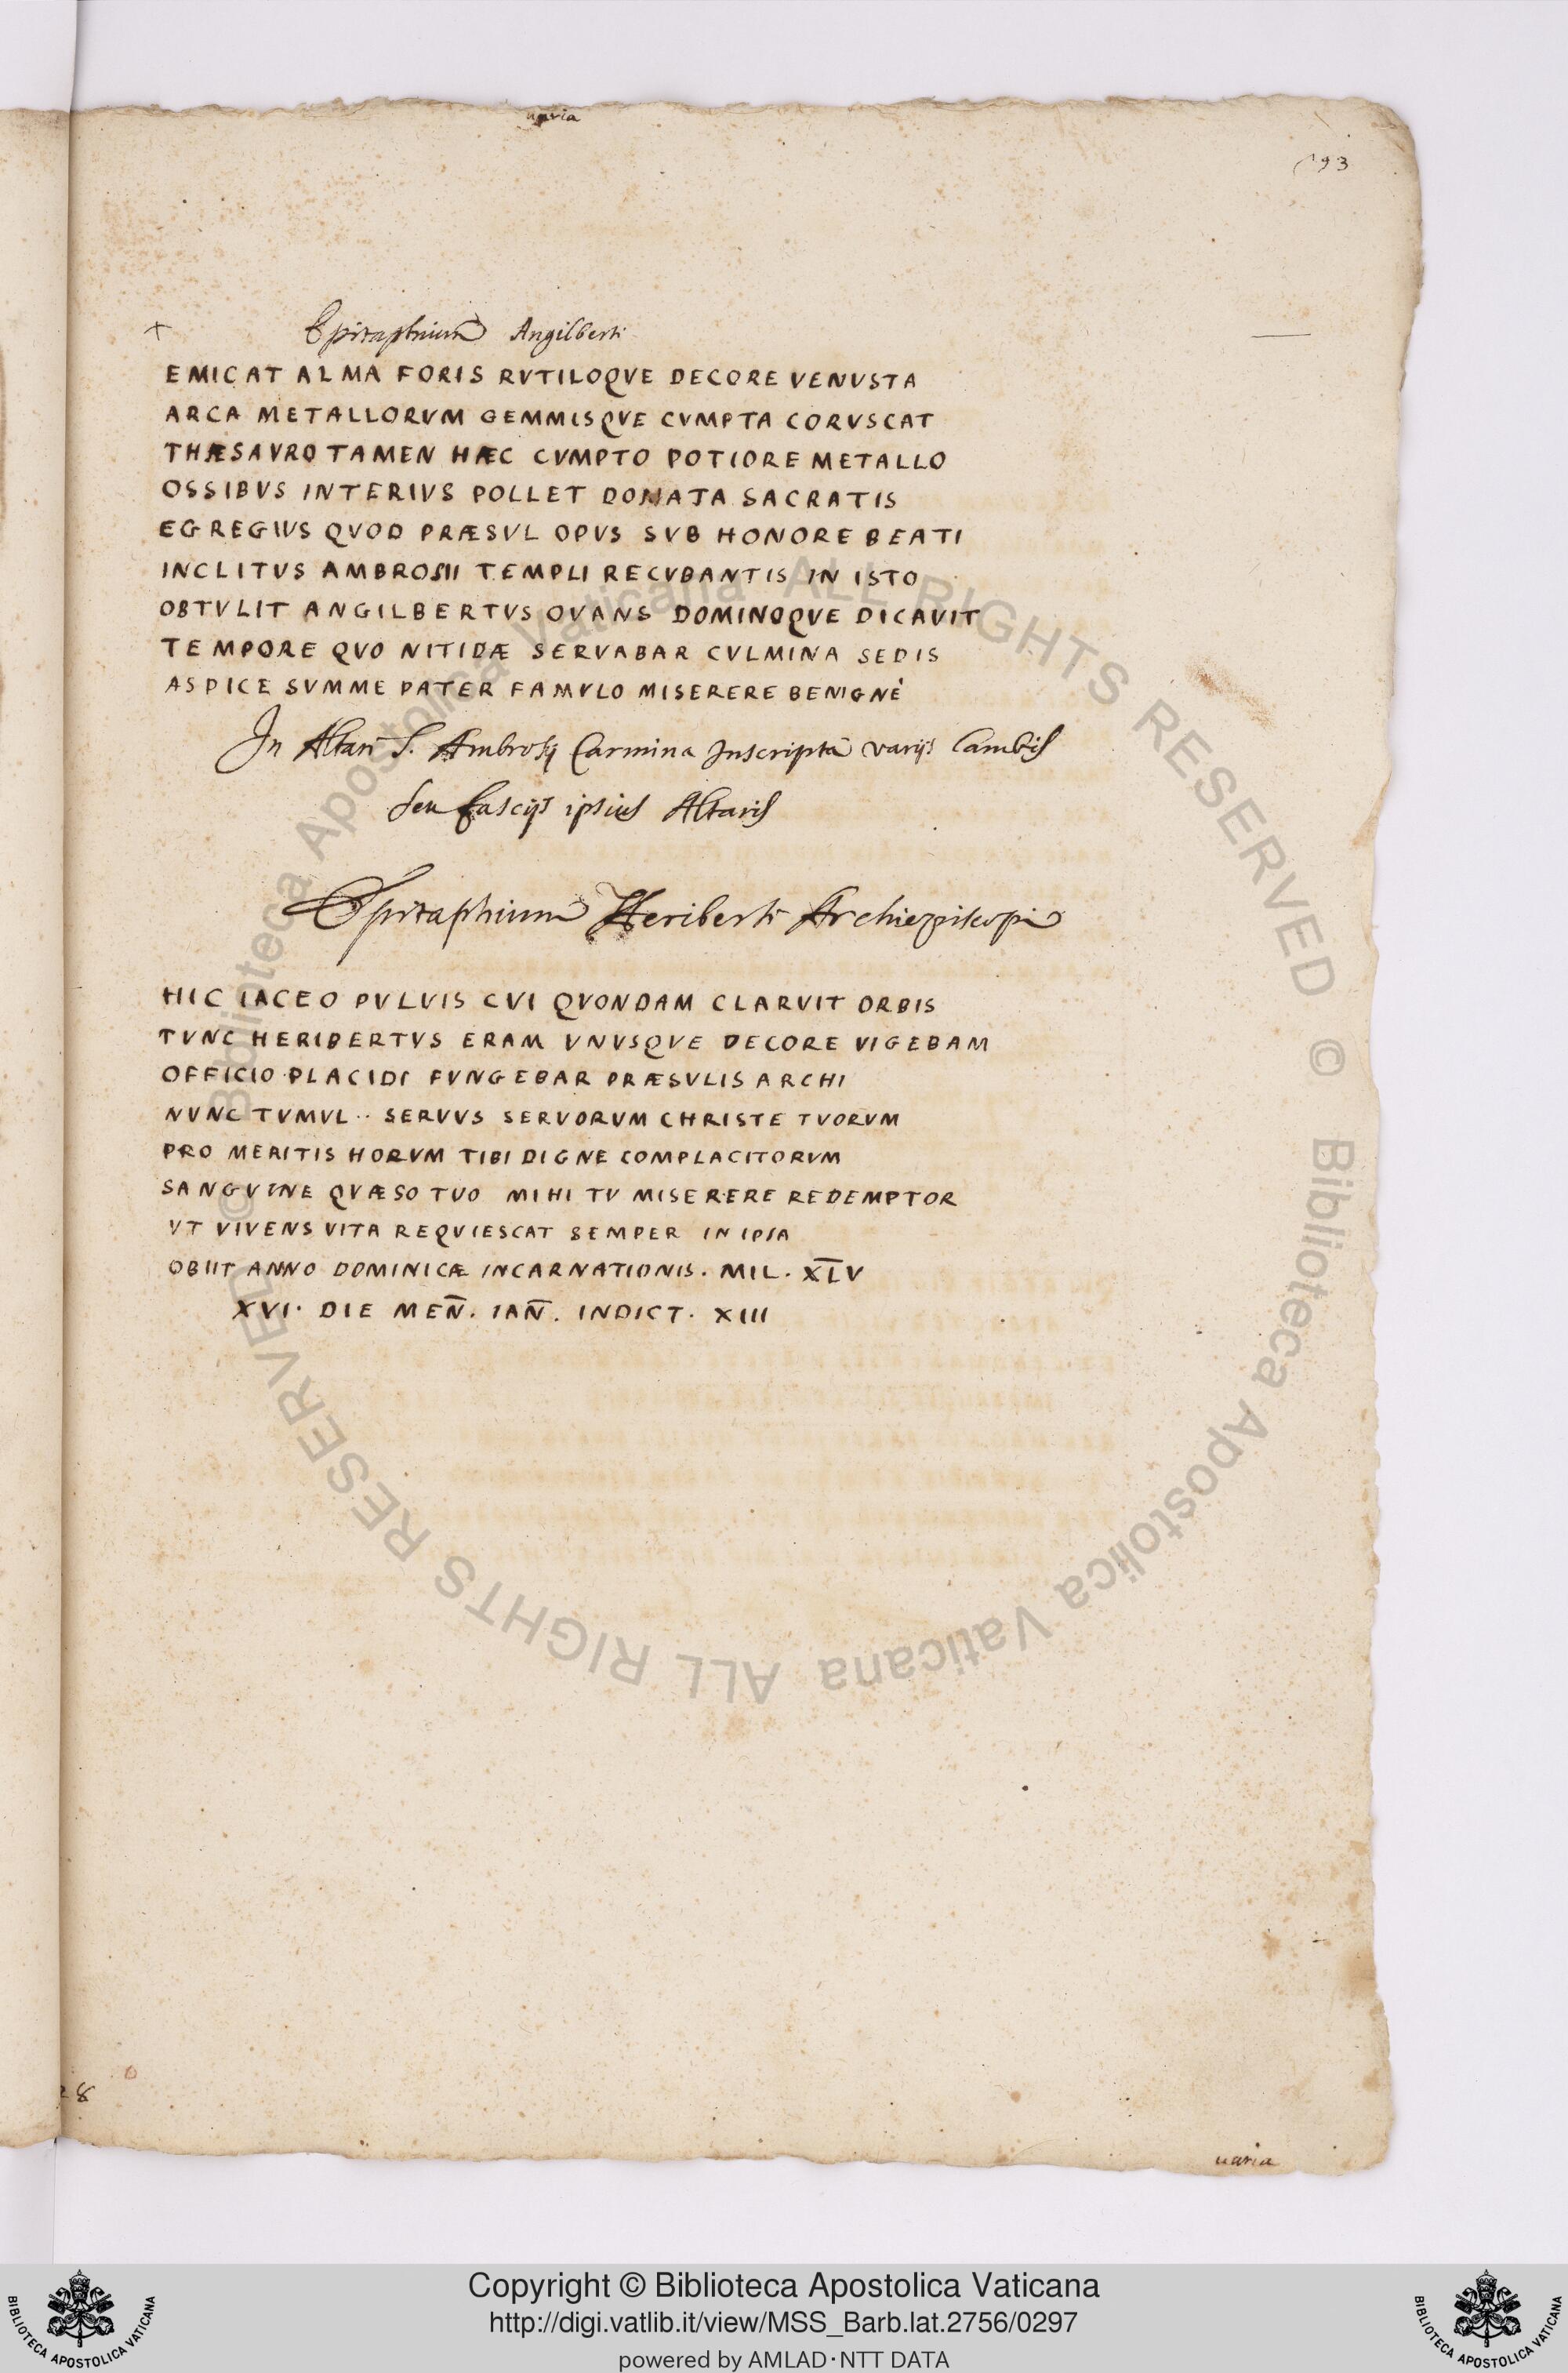 varia
193
+ Epitaphium Angilberti
EMICAT ALMA FORIS RVTILOQVE DECORE VENVSTA
ARCA METALLORVM GEMMISQVE CVMPTA CORVSCAT
THÆSAVRO TAMEN HÆC CVMPTO POTIORE METALLO
OSSIBVS INTERIVS POLLET DONATA SACRATIS
EGREGIVS QVOD PRÆSVL OPVS SVB HONORE BEATI
INCLITVS AMBROSII TEMPLI RECVBANTIS IN ISTO
OBTVLIT ANGILBERTVS OVANS DOMINOQVE DICAVIT
TEMPORE QVO NITIDÆ SERVABAR CVLMINA SEDIS
ASPICE SVMME PATER FAMVLO MISERERE BENIGNÈ
In Altari S. Ambrosij Carmina Inscripta varijs Lambis
seu fascijs ipsius Altaris
Epitaphium Heriberti Archiepiscopi
HIC IACEO PVLVIS CVI QVONDAM CLARVIT ORBIS
TVNC HERIBERTVS ERAM VNVSQVE DECORE VIGEBAM
OFFICIO PLACIDI FVNGEBAR PRÆSVLIS ARCHI
NVNC TVMVL·· SERVVS SERVORVM CHRISTE TVORVM
PRO MERITIS HORVM TIBI DIGNE COMPLACITORVM
SANGVINE QVÆSO TVO MIHI TV MISERERE REDEMPTOR
VT VIVENS VITA REQVIESCAT SEMPER IN IPSA
OBIIT ANNO DOMINICÆ INCARNATIONIS. MIL. X̅L̅V
XVI. DIE MEN̄. IAN̄. INDICT. XIII
28
uaria
© Biblioteca Apostolica Vaticana ALL RIGHTS RESERVED © Biblioteca Apostolica Vaticana ALL RIGHTS RESERVED
Copyright © Biblioteca Apostolica Vaticana
http://digi.vatlib.it/view/MSS_Barb.lat.2756/0297
powered by AMLAD·NTT DATA
BIBLIOTECA APOSTOLICA VATICANA
BIBLIOTECA APOSTOLICA VATICANA